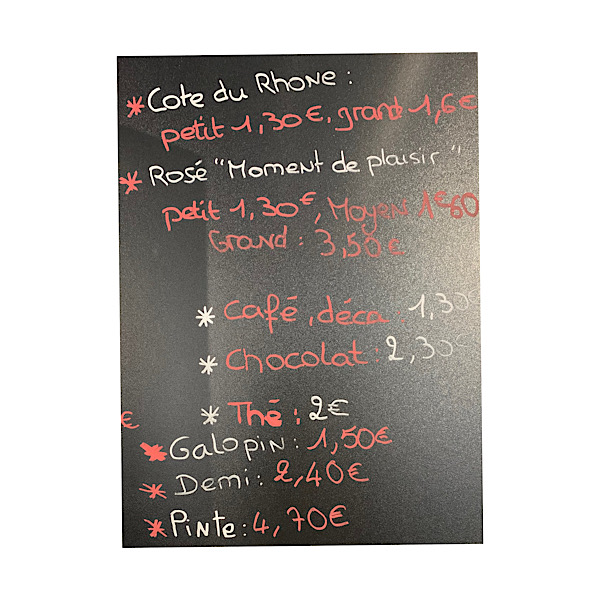 * Cote du Rhone :
petit 1,30€, grand 1,6€
* Rosé "Moment de plaisir"
petit 1,30€, Moyen 1€60
Grand : 3,50€
* Café, déca 1,30€
* Chocolat : 2,30€
€ * Thé : 2€
* Galopin : 1,50€
* Demi : 2,40€
* Pinte : 4,70€